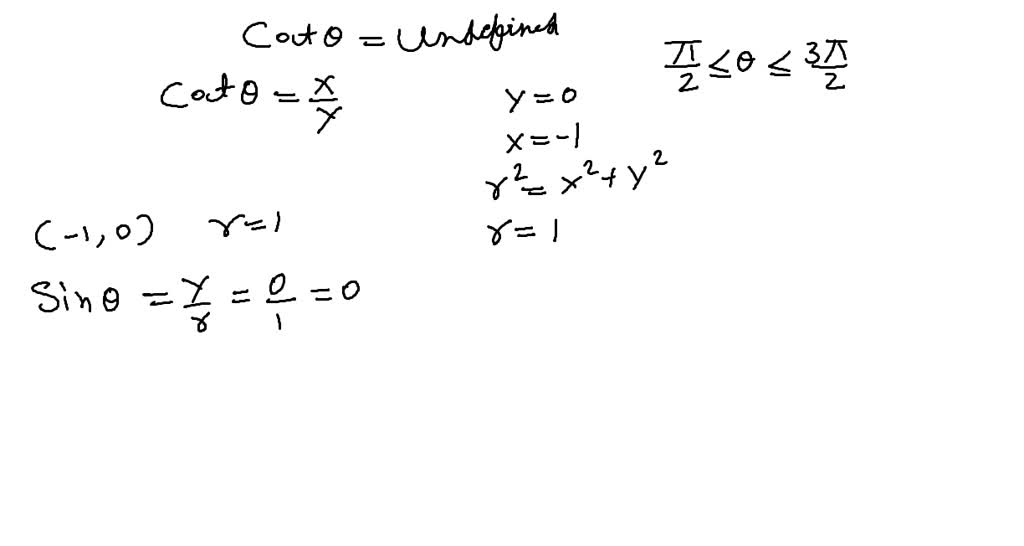 Cot θ = Undefined
π/2 ≤ θ ≤ 3π/2
Cot θ = x/y
y = 0
x = -1
r² = x² + y²
(-1, 0) r = 1
r = 1
Sin θ = y/r = 0/1 = 0